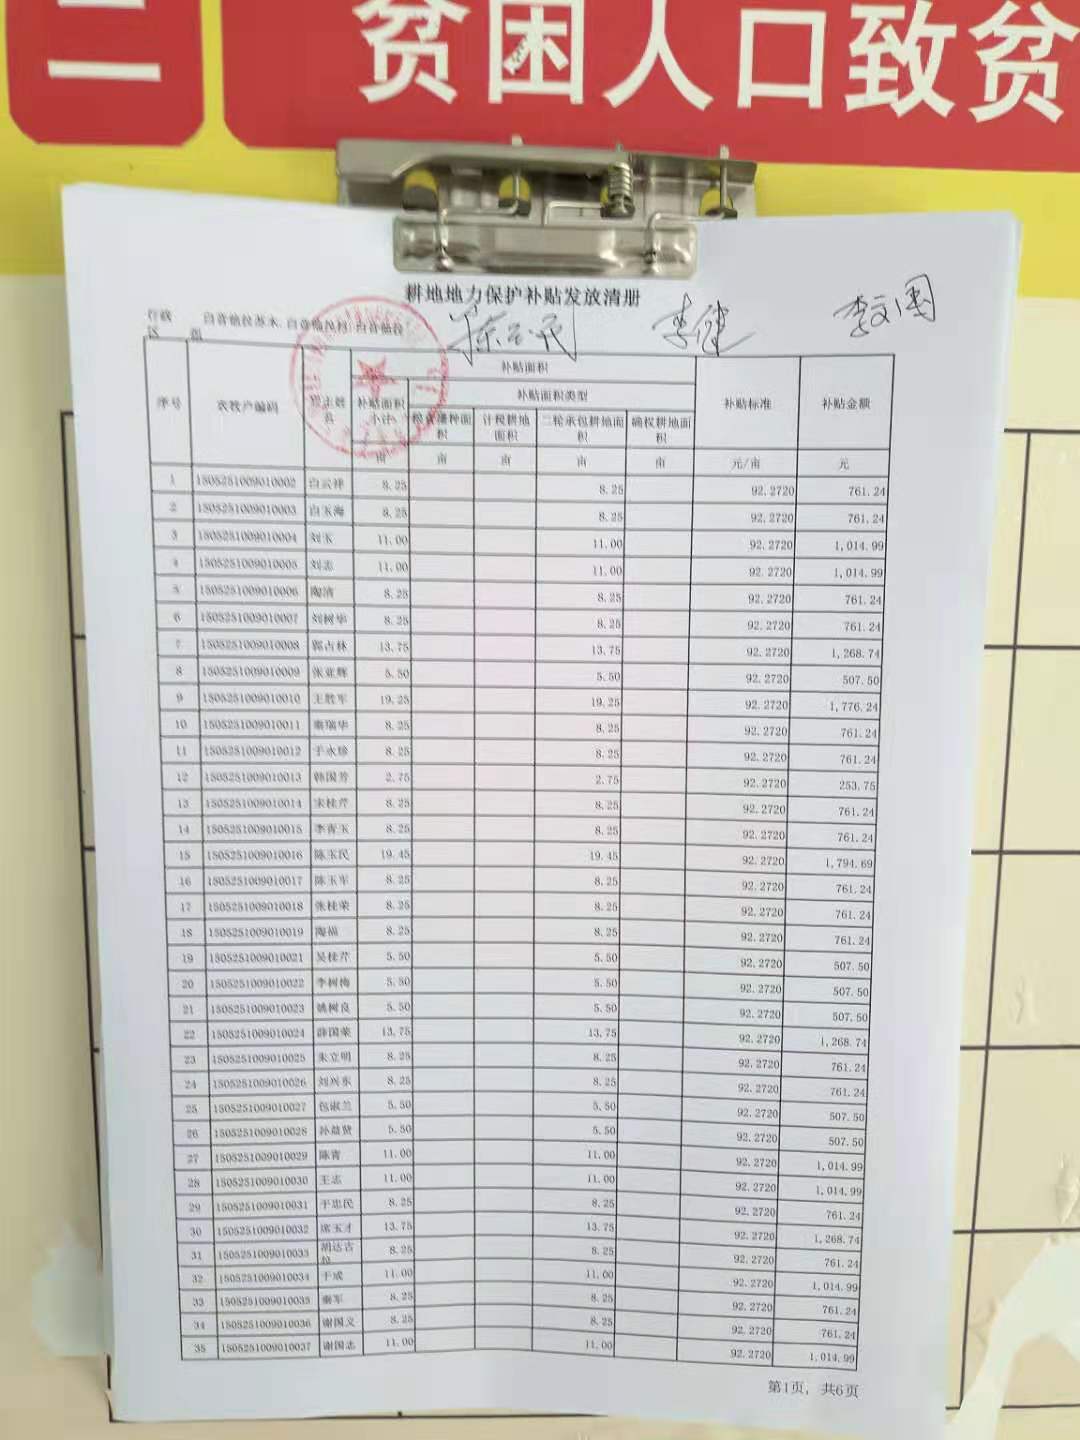 二
贫困人口致贫
耕地地力保护补贴发放清册
行政区
陈玉民 李健 李文国
序号 农牧户编码 户主姓名 补贴面积 补贴标准 补贴金额
补贴面积小计 补贴面积类型
粮食播种面积 计税耕地面积 二轮承包耕地面积 确权耕地面积
亩 亩 亩 亩 亩 元/亩 元
1 1505251009010002 白云祥 8.25 8.25 92.2720 761.24
2 1505251009010003 白玉海 8.25 8.25 92.2720 761.24
3 1505251009010004 刘玉 11.00 11.00 92.2720 1,014.99
4 1505251009010005 刘志 11.00 11.00 92.2720 1,014.99
5 1505251009010006 陶清 8.25 8.25 92.2720 761.24
6 1505251009010007 刘树华 8.25 8.25 92.2720 761.24
7 1505251009010008 郭占林 13.75 13.75 92.2720 1,268.74
8 1505251009010009 张亚辉 5.50 5.50 92.2720 507.50
9 1505251009010010 王胜军 19.25 19.25 92.2720 1,776.24
10 1505251009010011 秦瑞华 8.25 8.25 92.2720 761.24
11 1505251009010012 于永珍 8.25 8.25 92.2720 761.24
12 1505251009010013 韩国芳 2.75 2.75 92.2720 253.75
13 1505251009010014 宋桂芹 8.25 8.25 92.2720 761.24
14 1505251009010015 李青玉 8.25 8.25 92.2720 761.24
15 1505251009010016 陈玉民 19.45 19.45 92.2720 1,794.69
16 1505251009010017 陈玉军 8.25 8.25 92.2720 761.24
17 1505251009010018 张桂荣 8.25 8.25 92.2720 761.24
18 1505251009010019 陶福 8.25 8.25 92.2720 761.24
19 1505251009010021 吴桂芹 5.50 5.50 92.2720 507.50
20 1505251009010022 李树梅 5.50 5.50 92.2720 507.50
21 1505251009010023 姚树良 5.50 5.50 92.2720 507.50
22 1505251009010024 薛国荣 13.75 13.75 92.2720 1,268.74
23 1505251009010025 朱立明 8.25 8.25 92.2720 761.24
24 1505251009010026 刘兴东 8.25 8.25 92.2720 761.24
25 1505251009010027 包淑兰 5.50 5.50 92.2720 507.50
26 1505251009010028 孙益贤 5.50 5.50 92.2720 507.50
27 1505251009010029 陈青 11.00 11.00 92.2720 1,014.99
28 1505251009010030 王志 11.00 11.00 92.2720 1,014.99
29 1505251009010031 于忠民 8.25 8.25 92.2720 761.24
30 1505251009010032 席玉才 13.75 13.75 92.2720 1,268.74
31 1505251009010033 胡达古拉 8.25 8.25 92.2720 761.24
32 1505251009010034 于成 11.00 11.00 92.2720 1,014.99
33 1505251009010035 秦军 8.25 8.25 92.2720 761.24
34 1505251009010036 谢国义 8.25 8.25 92.2720 761.24
35 1505251009010037 谢国志 11.00 11.00 92.2720 1,014.99
第1页，共6页